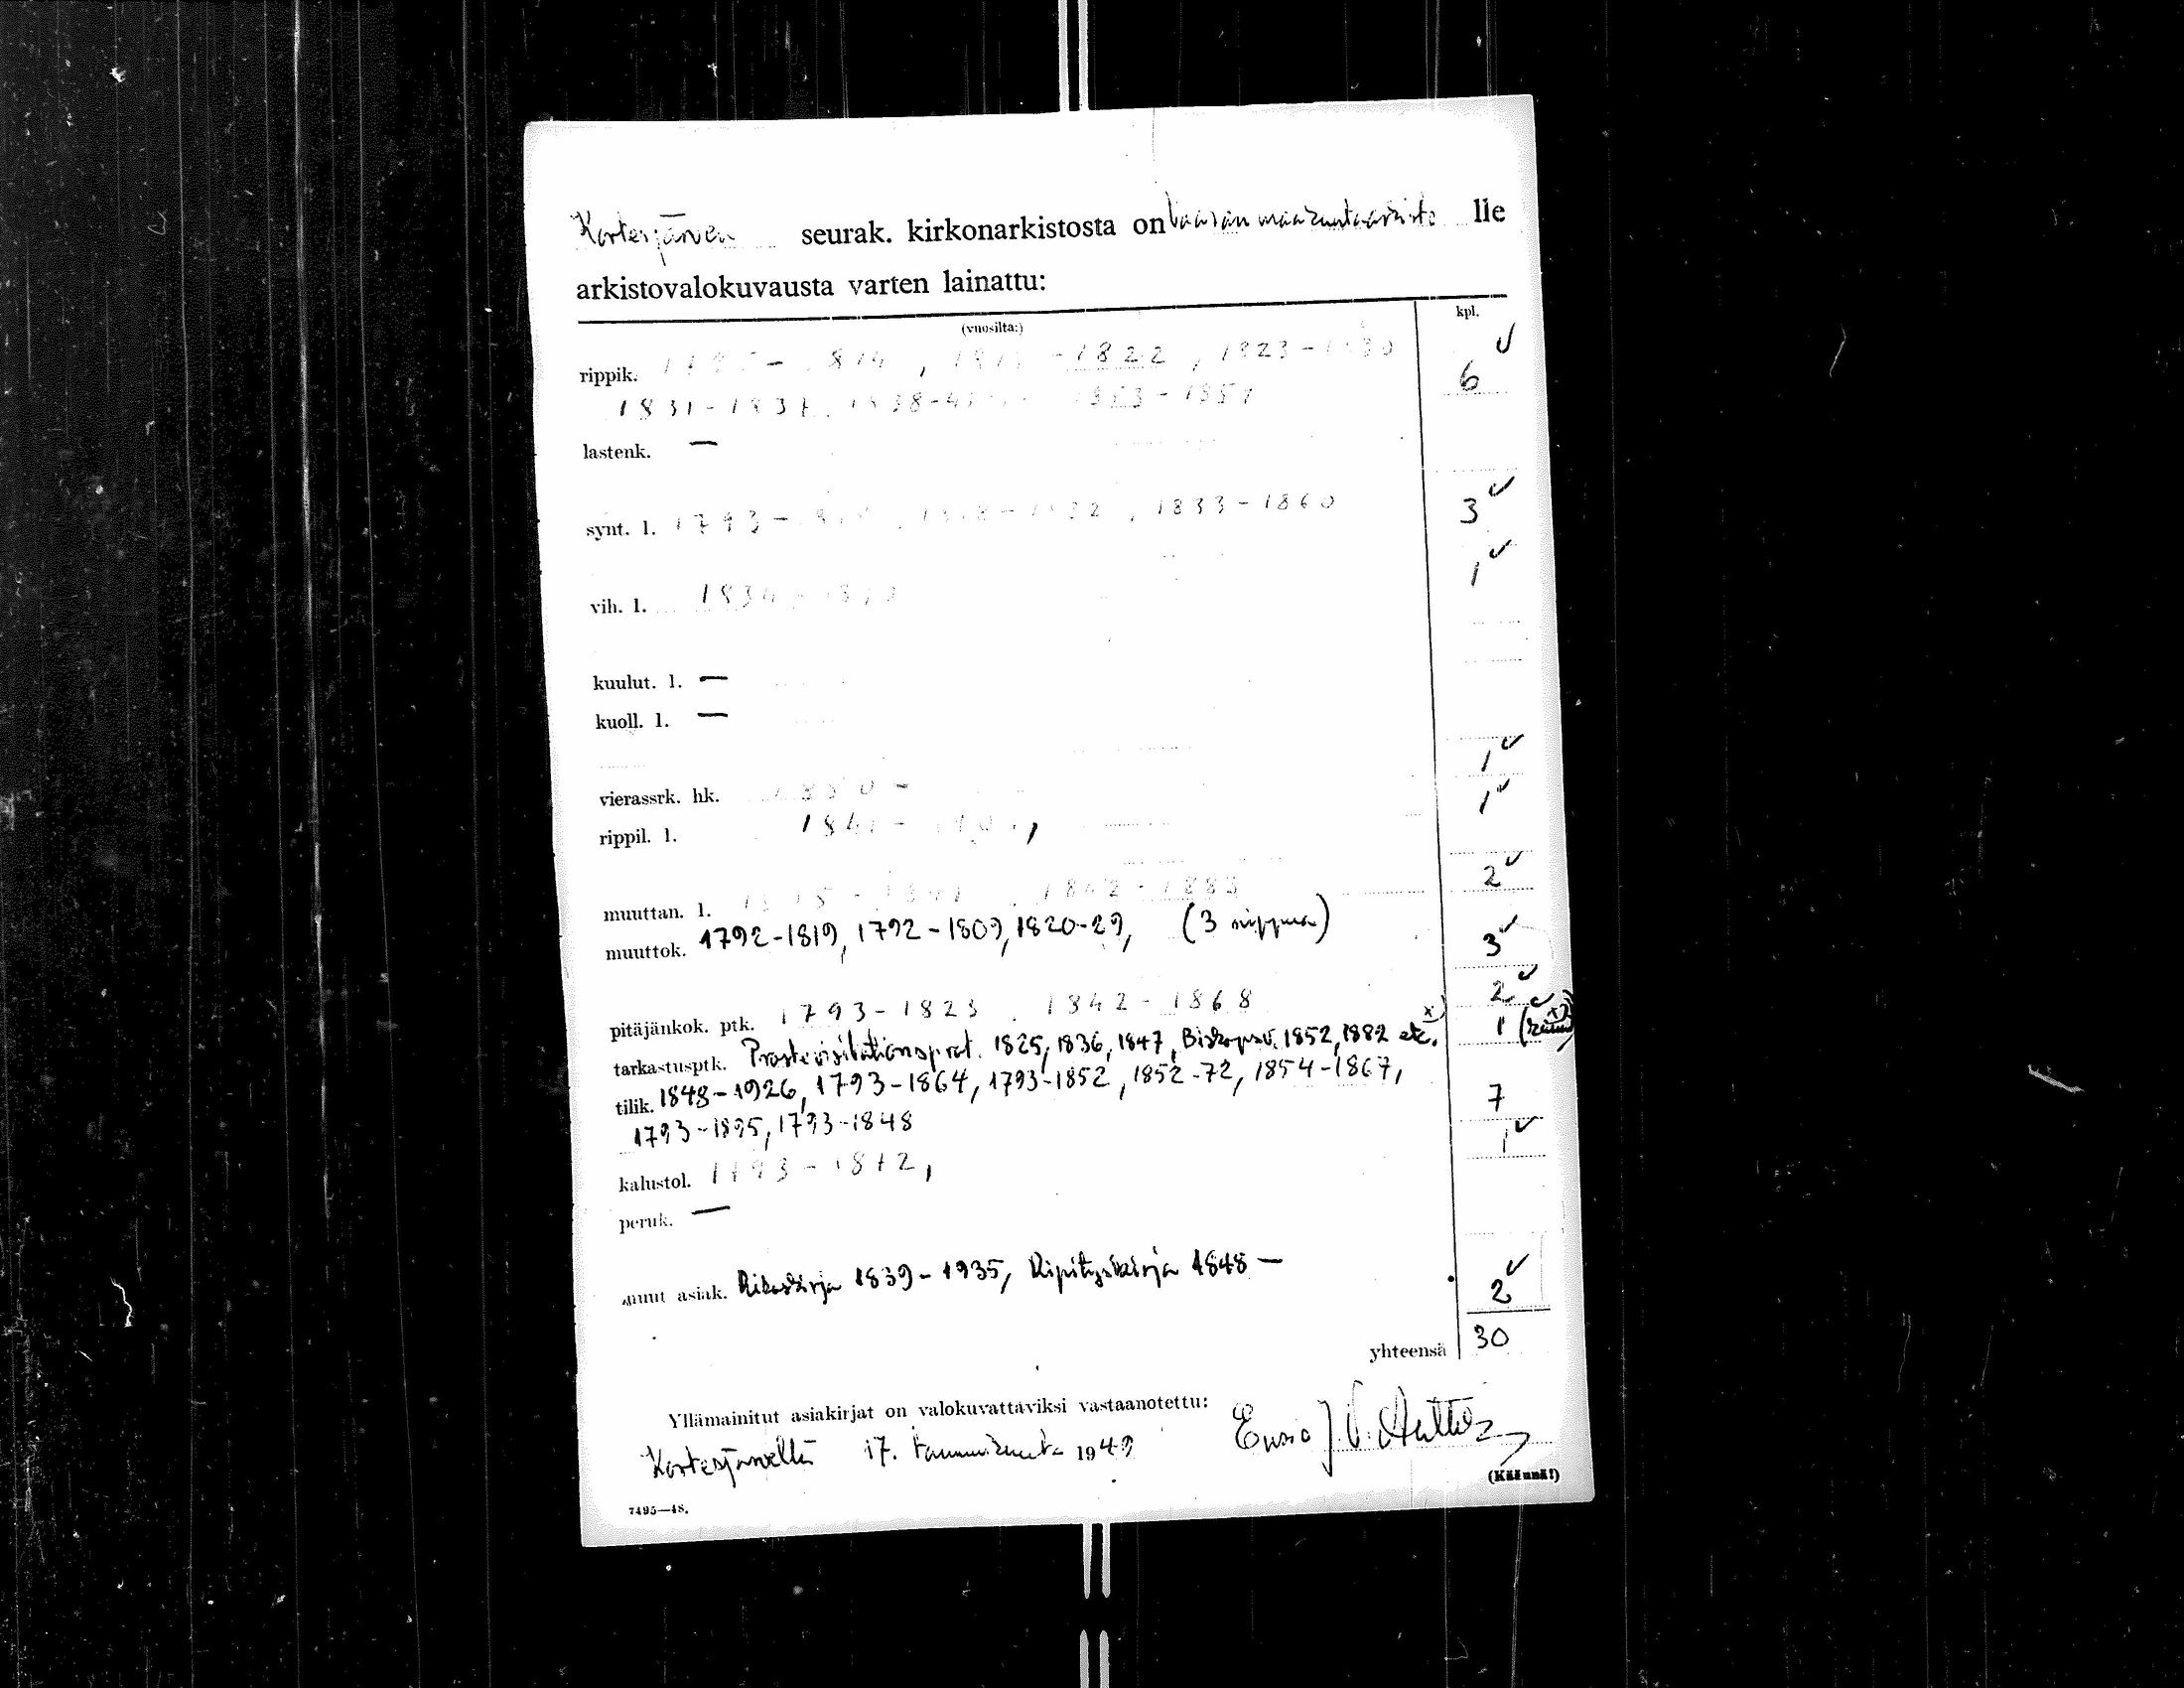 Kortesjärven seurak. kirkonarkistosta on Vaasan maakuntaarkisto lle
arkistovalokuvausta varten lainattu:
(vuosilta:) kpl.
rippik. 1814, -1822, 1823-1830 6
1831-1837, 1853-1857
lastenk. —
synt. l. 1793- 1833-1860 3
vih. l. 1
kuulut. l. —
kuoll. l. —
vierassrk. hk. 1
rippil. l. 1
muuttan. l. 1842-1883 2
muuttok. 1792-1819, 1792-1809, 1820-29, (3 nippua) 3
pitäjänkok. ptk. 1793-1823, 1842-1868 2
tarkastusptk. Prostevisitationsprot. 1825, 1836, 1847, Biskopsv. 1852, 1882 etc. x) 1
tilik. 1848-1926, 1793-1864, 1793-1852, 1852-72, 1854-1867,
1793-1895, 1793-1848 7
kalustol. 1793-1872, 1
peruk. —
muut asiak. Rikoskirja 1839-1935, Ripityskirja 1848 — 2
yhteensä 30
Yllämainitut asiakirjat on valokuvattaviksi vastaanotettu:
Kortesjärvellä 17. tammikuuta 1949
(Käännä!)
7495—48.